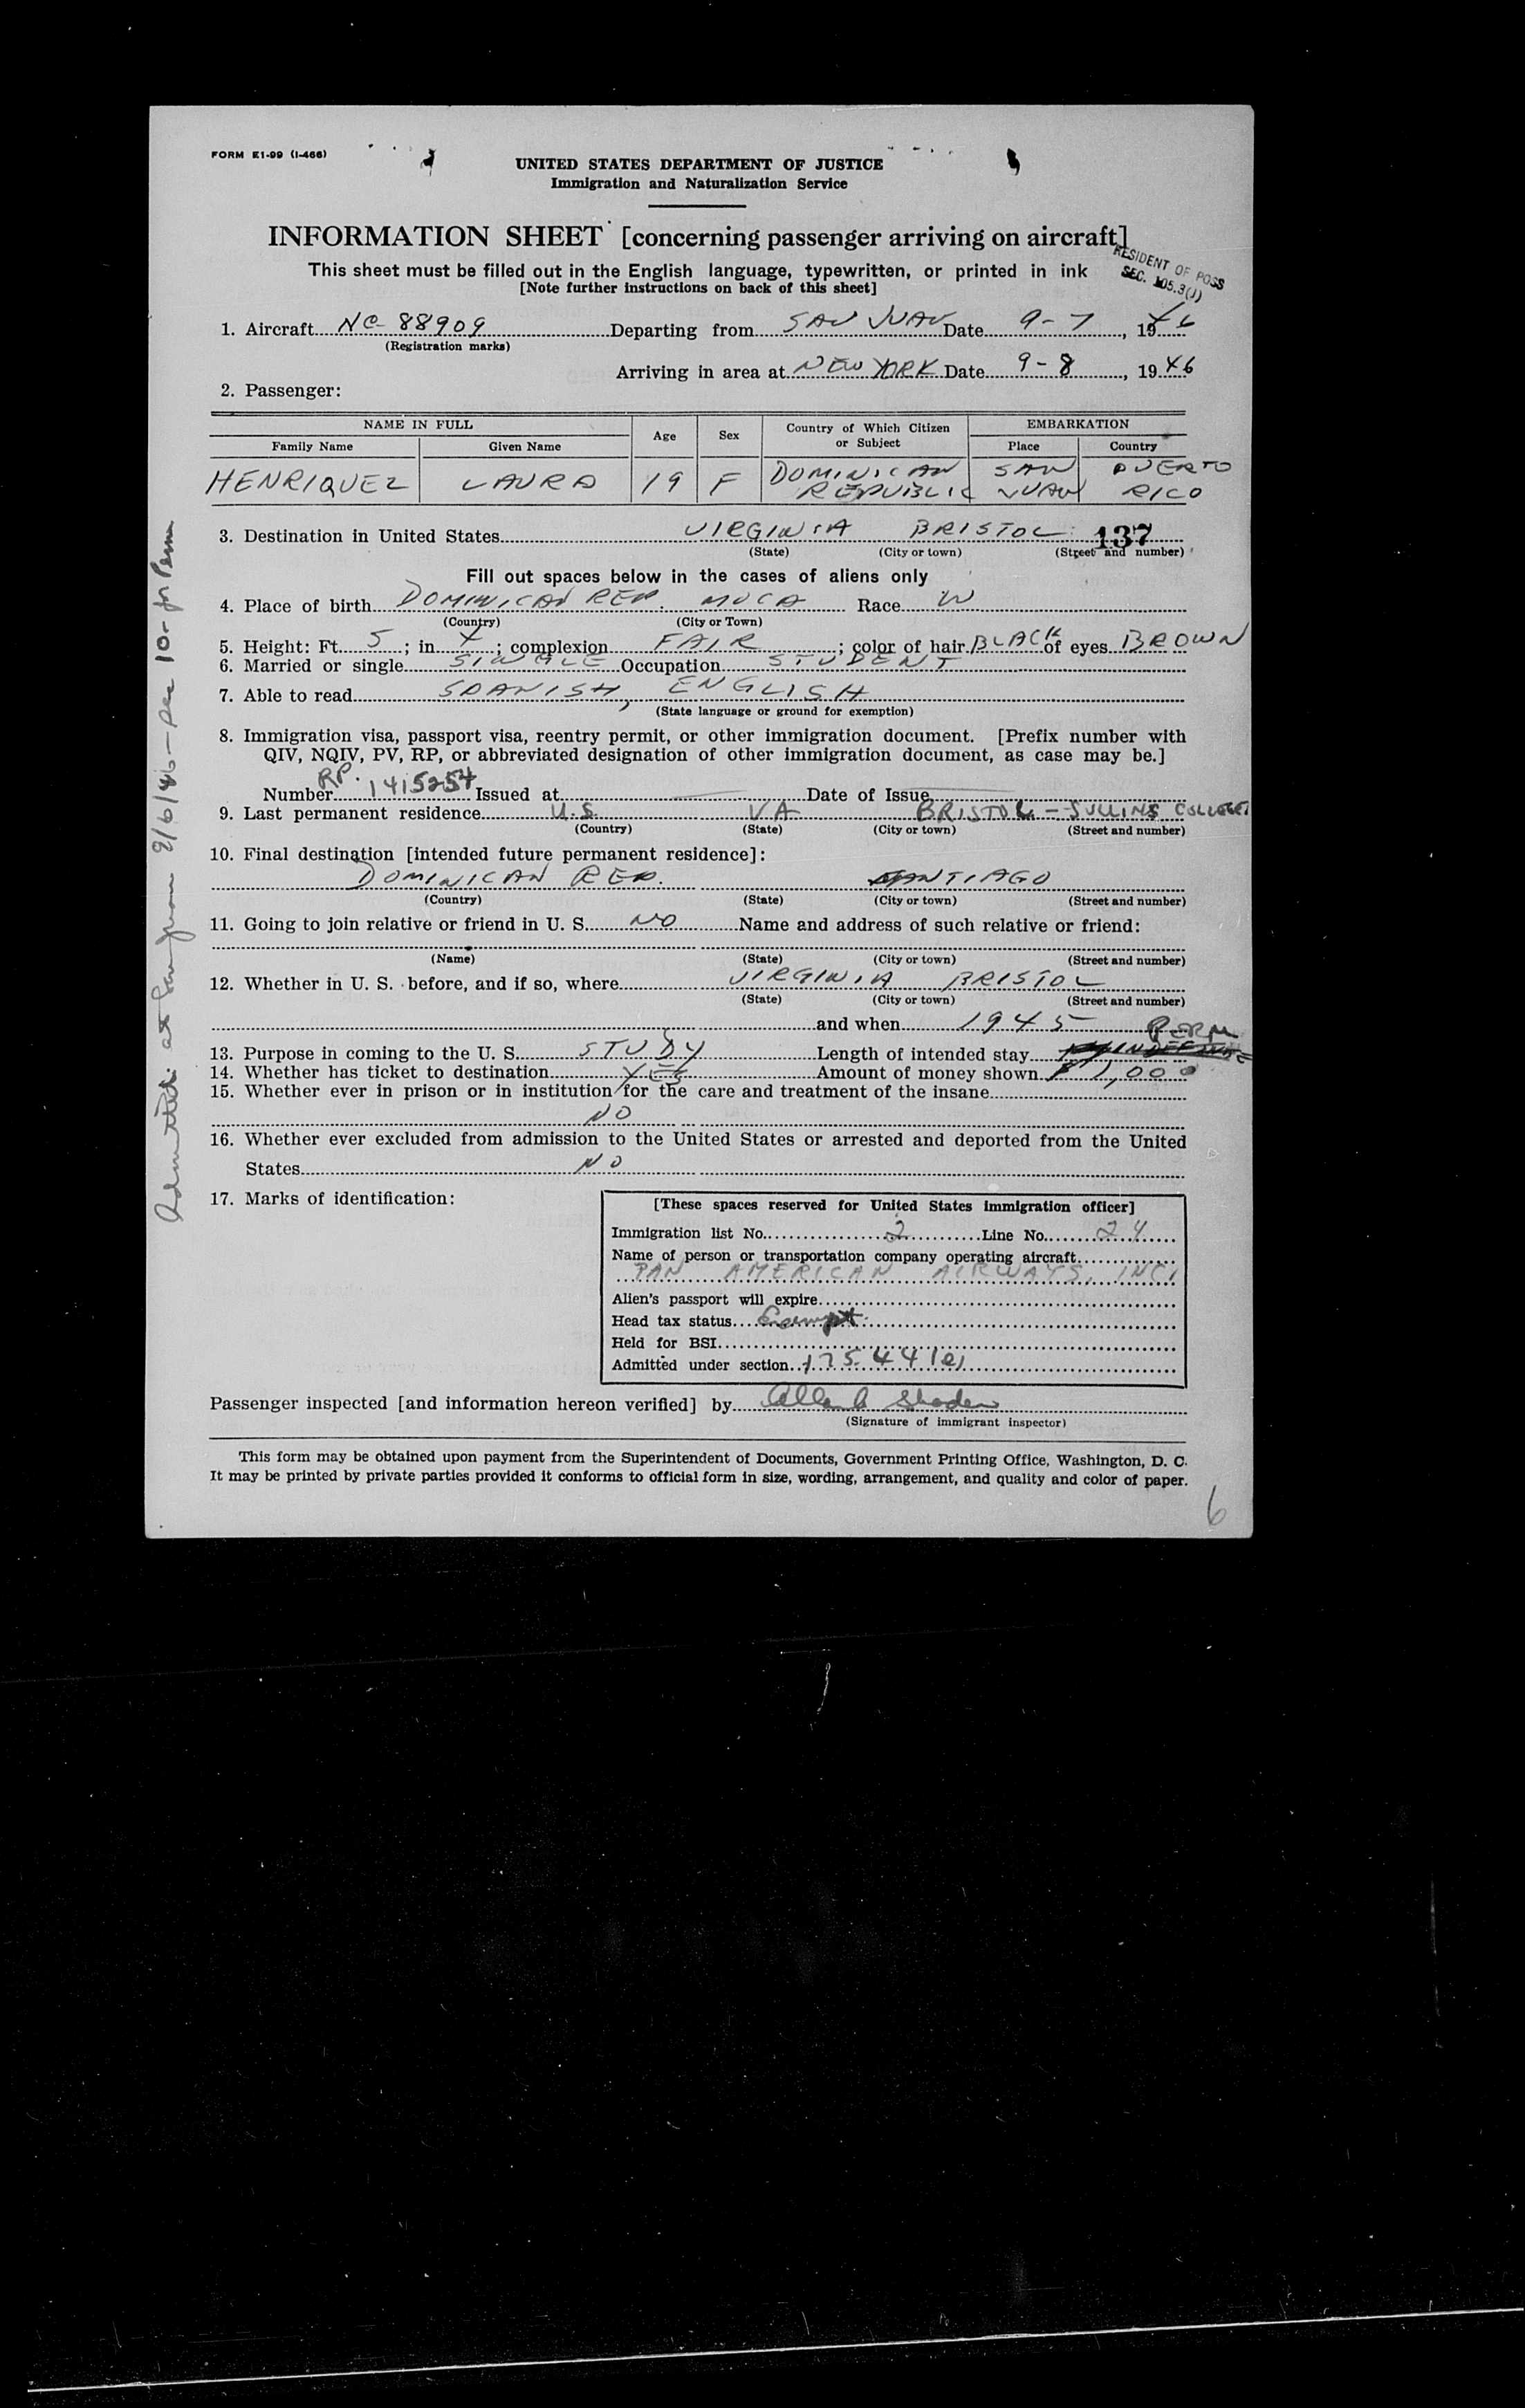 FORM E1-99 (I-466)
UNITED STATES DEPARTMENT OF JUSTICE
Immigration and Naturalization Service
INFORMATION SHEET [concerning passenger arriving on aircraft]
RESIDENT OF POSS
SEC. 105.3(J)
This sheet must be filled out in the English language, typewritten, or printed in ink
[Note further instructions on back of this sheet]
1. Aircraft NC-88909 Departing from SAN JUAN Date 9-7, 1946
(Registration marks)
Arriving in area at NEW YORK Date 9-8, 1946
2. Passenger:
NAME IN FULL Age Sex Country of Which Citizen or Subject EMBARKATION
Family Name Given Name Place Country
HENRIQUEZ LAURA 19 F DOMINICAN REPUBLIC SAN JUAN PUERTO RICO
3. Destination in United States VIRGINIA BRISTOL 137
(State) (City or town) (Street and number)
Fill out spaces below in the cases of aliens only
4. Place of birth DOMINICAN REP. MOCA Race W
(Country) (City or Town)
5. Height: Ft. 5; in 4; complexion FAIR; color of hair BLACK of eyes BROWN
6. Married or single SINGLE Occupation STUDENT
7. Able to read SPANISH, ENGLISH
(State language or ground for exemption)
8. Immigration visa, passport visa, reentry permit, or other immigration document. [Prefix number with
QIV, NQIV, PV, RP, or abbreviated designation of other immigration document, as case may be.]
Number RP. 1415254 Issued at Date of Issue
9. Last permanent residence U.S. VA BRISTOL - SULLINS COLLEGE
(Country) (State) (City or town) (Street and number)
10. Final destination [intended future permanent residence]:
DOMINICAN REP. SANTIAGO
(Country) (State) (City or town) (Street and number)
11. Going to join relative or friend in U. S. NO Name and address of such relative or friend:
(Name) (State) (City or town) (Street and number)
12. Whether in U. S. before, and if so, where VIRGINIA BRISTOL
(State) (City or town) (Street and number)
and when 1945
13. Purpose in coming to the U. S. STUDY Length of intended stay PERM
14. Whether has ticket to destination YES Amount of money shown $ 1,000
15. Whether ever in prison or in institution for the care and treatment of the insane
NO
16. Whether ever excluded from admission to the United States or arrested and deported from the United
States NO
17. Marks of identification:
[These spaces reserved for United States immigration officer]
Immigration list No. 2 Line No. 24
Name of person or transportation company operating aircraft
PAN AMERICAN AIRWAYS, INC.
Alien's passport will expire
Head tax status Exempt
Held for BSI
Admitted under section 175.44(e)
Passenger inspected [and information hereon verified] by Allen
(Signature of immigrant inspector)
This form may be obtained upon payment from the Superintendent of Documents, Government Printing Office, Washington, D. C.
It may be printed by private parties provided it conforms to official form in size, wording, arrangement, and quality and color of paper.
6
Admitted at San Juan 9/6/46 - Sec 10- for Perm